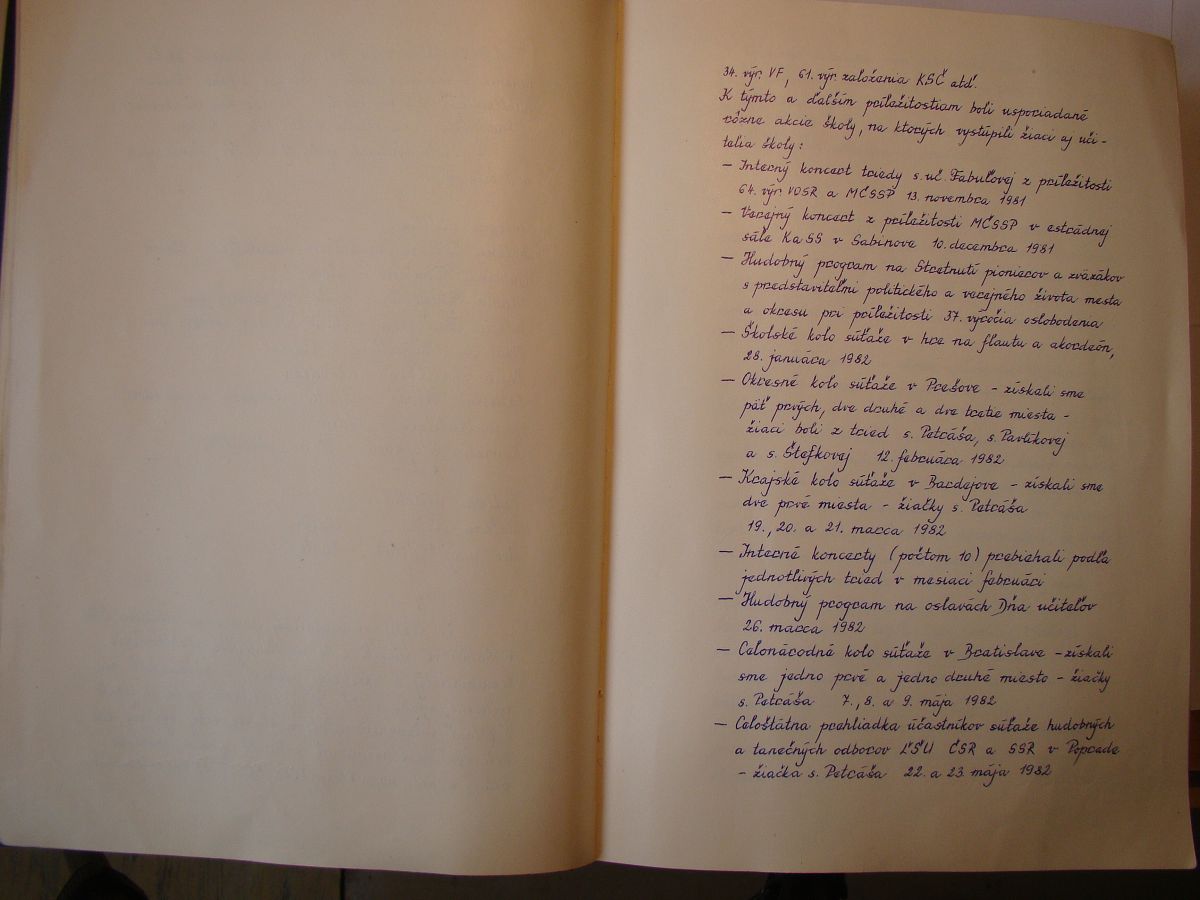 34. výr. VF, 61. výr. založenia KSČ atď.
K týmto a ďaľším príležitostiam boli usporiadané
rôzne akcie školy, na ktorých vystúpili žiaci aj uči-
telia školy:
— Interný koncert triedy s. uč. Fabuľovej z príležitosti
64. výr. VOSR a MČSSP 13. novembra 1981
— Verejný koncert z príležitosti MČSSP v estrádnej
sále KaSS v Sabinove 10. decembra 1981
— Hudobný program na Stretnutí pionierov a zväzákov
s predstaviteľmi politického a verejného života mesta
a okresu pri príležitosti 37. výročia oslobodenia
— Školské kolo súťaže v hre na flautu a akordeón,
28. januára 1982
— Okresné kolo súťaže v Prešove - získali sme
päť prvých, dve druhé a dve tretie miesta -
žiaci boli z tried s. Petráša, s. Pavlíkovej
a s. Štefkovej 12. februára 1982
— Krajské kolo súťaže v Bardejove - získali sme
dve prvé miesta - žiačky s. Petráša
19., 20. a 21. marca 1982
— Interné koncerty (počtom 10) prebiehali podľa
jednotlivých tried v mesiaci februári
— Hudobný program na oslavách Dňa učiteľov
26. marca 1982
— Celonárodné kolo súťaže v Bratislave - získali
sme jedno prvé a jedno druhé miesto - žiačky
s. Petráša 7., 8. a 9. mája 1982
— Celoštátna prehliadka účastníkov súťaže hudobných
a tanečných odborov ĽŠU ČSR a SSR v Poprade
- žiačka s. Petráša 22. a 23. mája 1982